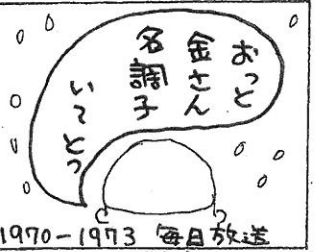 おっと
金さん
名調子
いてとっ
1970-1973 毎日放送